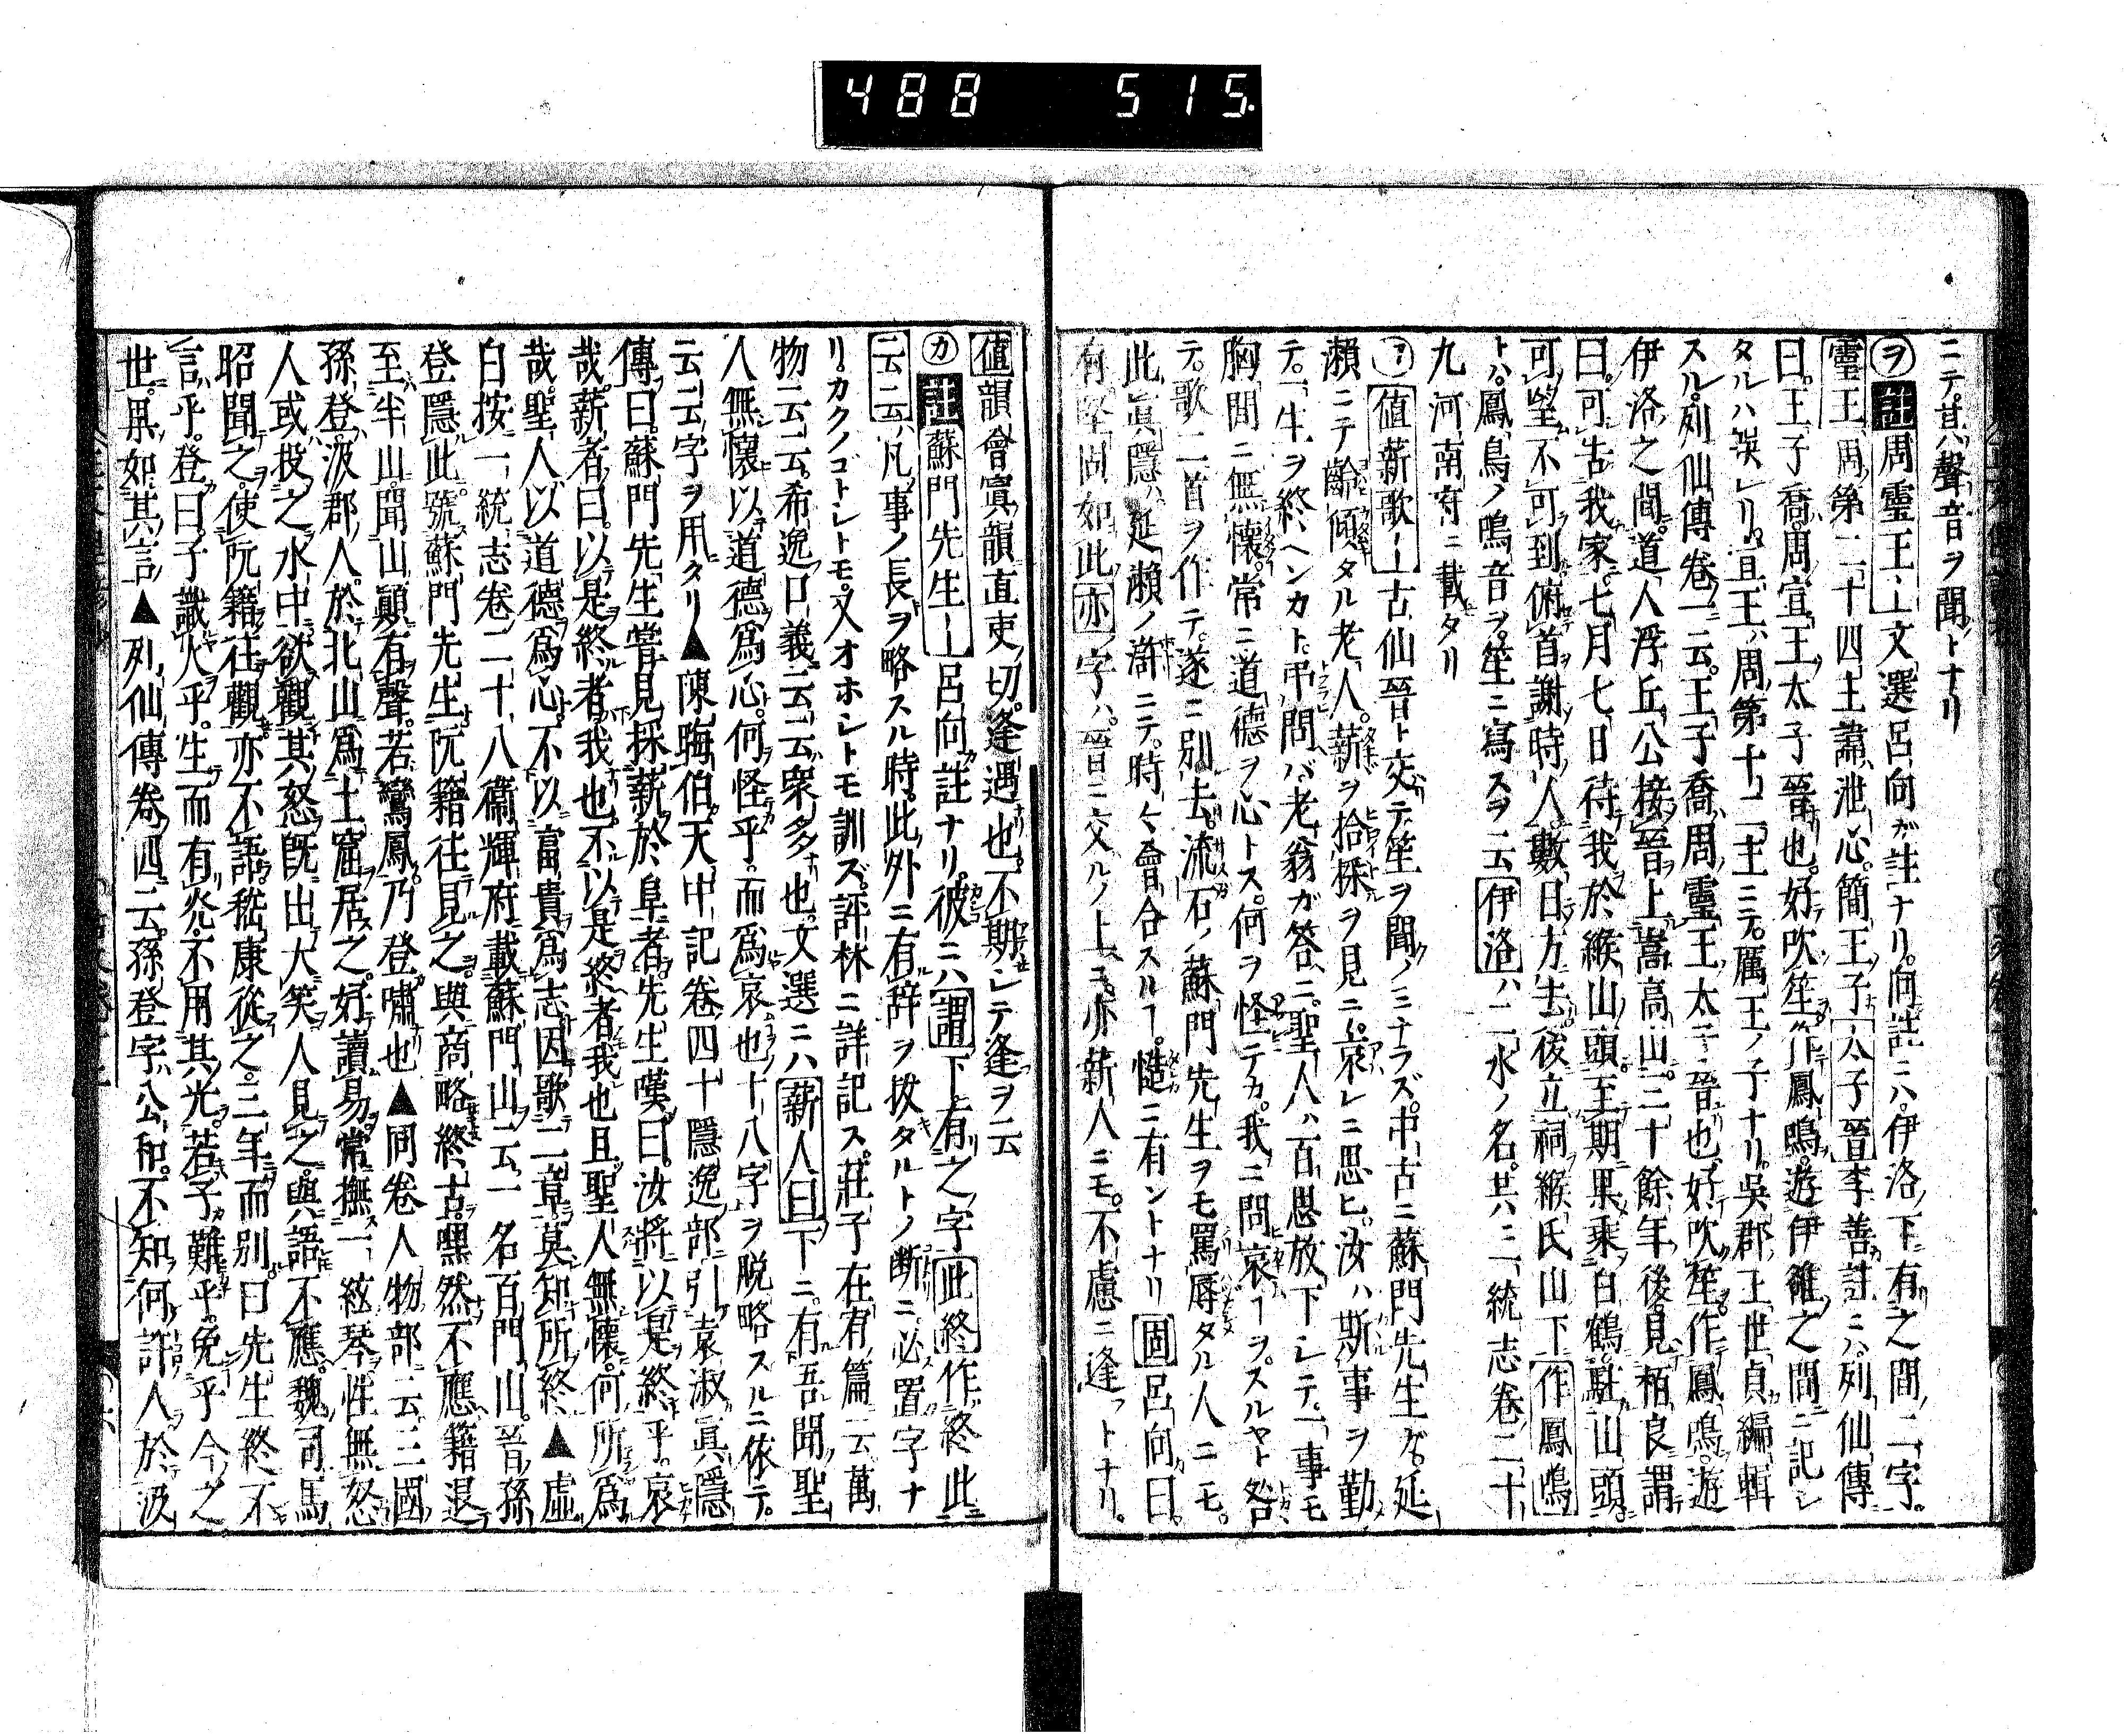 488 515.
ニテ其聲音ヲ聞トナリ
ヲ 註 周霊王ー文選呂向ガ註ナリ。向註ニハ。伊洛下有之間二字。
霊王周第二十四主諱泄心。簡王子太子晉李善註ニハ列仙傳
曰。王子喬。周宣王太子晉也。好吹笙作鳳鳴。遊伊雒之間ニ記シ
タルハ誤レリ。且王ハ周第十二主ニテ。厲王ノ子ナリ。吳郡王世貞編輯
スル。列仙傳卷一云。王子喬周霊王太子晉也。好吹笙作鳳鳴。遊
伊洛之間。道人浮丘公接晉上嵩高山。三十餘年後見栢良謂
曰。可告我家。七月七日待我於緱山頭。至期果乗白鶴駐山頭。
可望不可到。俯首謝時人。數日方去。後立祠緱氏山下作鳳鳴
トハ。鳳鳥ノ鳴音ヲ。笙ニ寫スヲ云伊洛ハ二水ノ名。其三統志卷二十
九河南府ニ載タリ
ワ 値薪歌ー古仙晉ト交テ笙ヲ聞ノミナラズ。中古ニ蘇門先生ガ。延
瀬ニテ齡傾タル老人。薪ヲ拾採ヲ見ニ。哀レニ思ヒ。汝ハ斯事ヲ勤
テ。一生ヲ終ヘンカト。弔問バ老翁ガ答ニ。聖人ハ百思放下シテ。一事モ
胸間ニ無懷。常ニ道德ヲ心トス。何ヲ怪テカ。我ニ問哀ーヲスルヤト咎
テ。歌二首ヲ作テ。遂ニ別去。流石ノ蘇門先生ヲモ罵辱タル人ニモ。
此眞隱ハ延瀬ノ滸ニテ。時々會合スルヿ。慥ニ有ントナリ固呂向曰。
有堅固如此亦ノ字ハ。晉ニ交ルノ上ニ。亦薪人ニモ。不慮ニ逢フトナリ。
値韻會寘韻直吏切。逢遇也。不期シテ逢ヲ云
カ 註 蘇門先生ー呂向註ナリ。彼ニハ謂下有之字此終作終此
云云凡事ノ長ヲ略スル時。此外ニ有辞ヲ拔タルトノ断ニ。必置字ナ
リ。カクノゴトシトモ。又オホシトモ訓ズ。評林ニ詳記ス。莊子在宥篇云萬
物云云。希逸口義云云衆多也。文選ニハ薪人曰下ニ。有吾聞聖
人無懷以道德爲心。何怪乎。而爲哀也十八字ヲ脱略スルニ依テ。
云云字ヲ用タリ▲陳晦伯天中記卷四十隱逸部引袁淑眞隱
傳曰。蘇門先生嘗見採薪於阜者。先生嘆曰。汝將以是終乎。哀
哉。薪者曰。以是終者我也。不以是終者我也且聖人無懷。何所爲
哉。聖人以道德爲心。不以富貴爲志。因歌二章。莫知所終▲虛
白按一統志卷二十八衞輝府載蘇門山云一名百門山。晉孫
登隱此。號蘇門先生。阮籍往見之。與商略終古。嘿然不應。籍退
至半山。聞山巓有聲。若鸞鳳。乃登嘯也▲同卷人物部云三國
孫登汲郡人。於北山爲土窟居之。好讀易。常撫一絃琴。性無怒
人或投之水中。欲觀其怒。旣出大笑。人見之。與語不應。魏司馬
昭聞之。使阮籍往觀。亦不語。嵇康從之。三年而別曰先生終不
言乎。登曰。子識火乎。生而有光。不用其光。若子難乎。免乎今之
世。果如其言▲列仙傳卷四云。孫登字公和。不知何許人。於汲